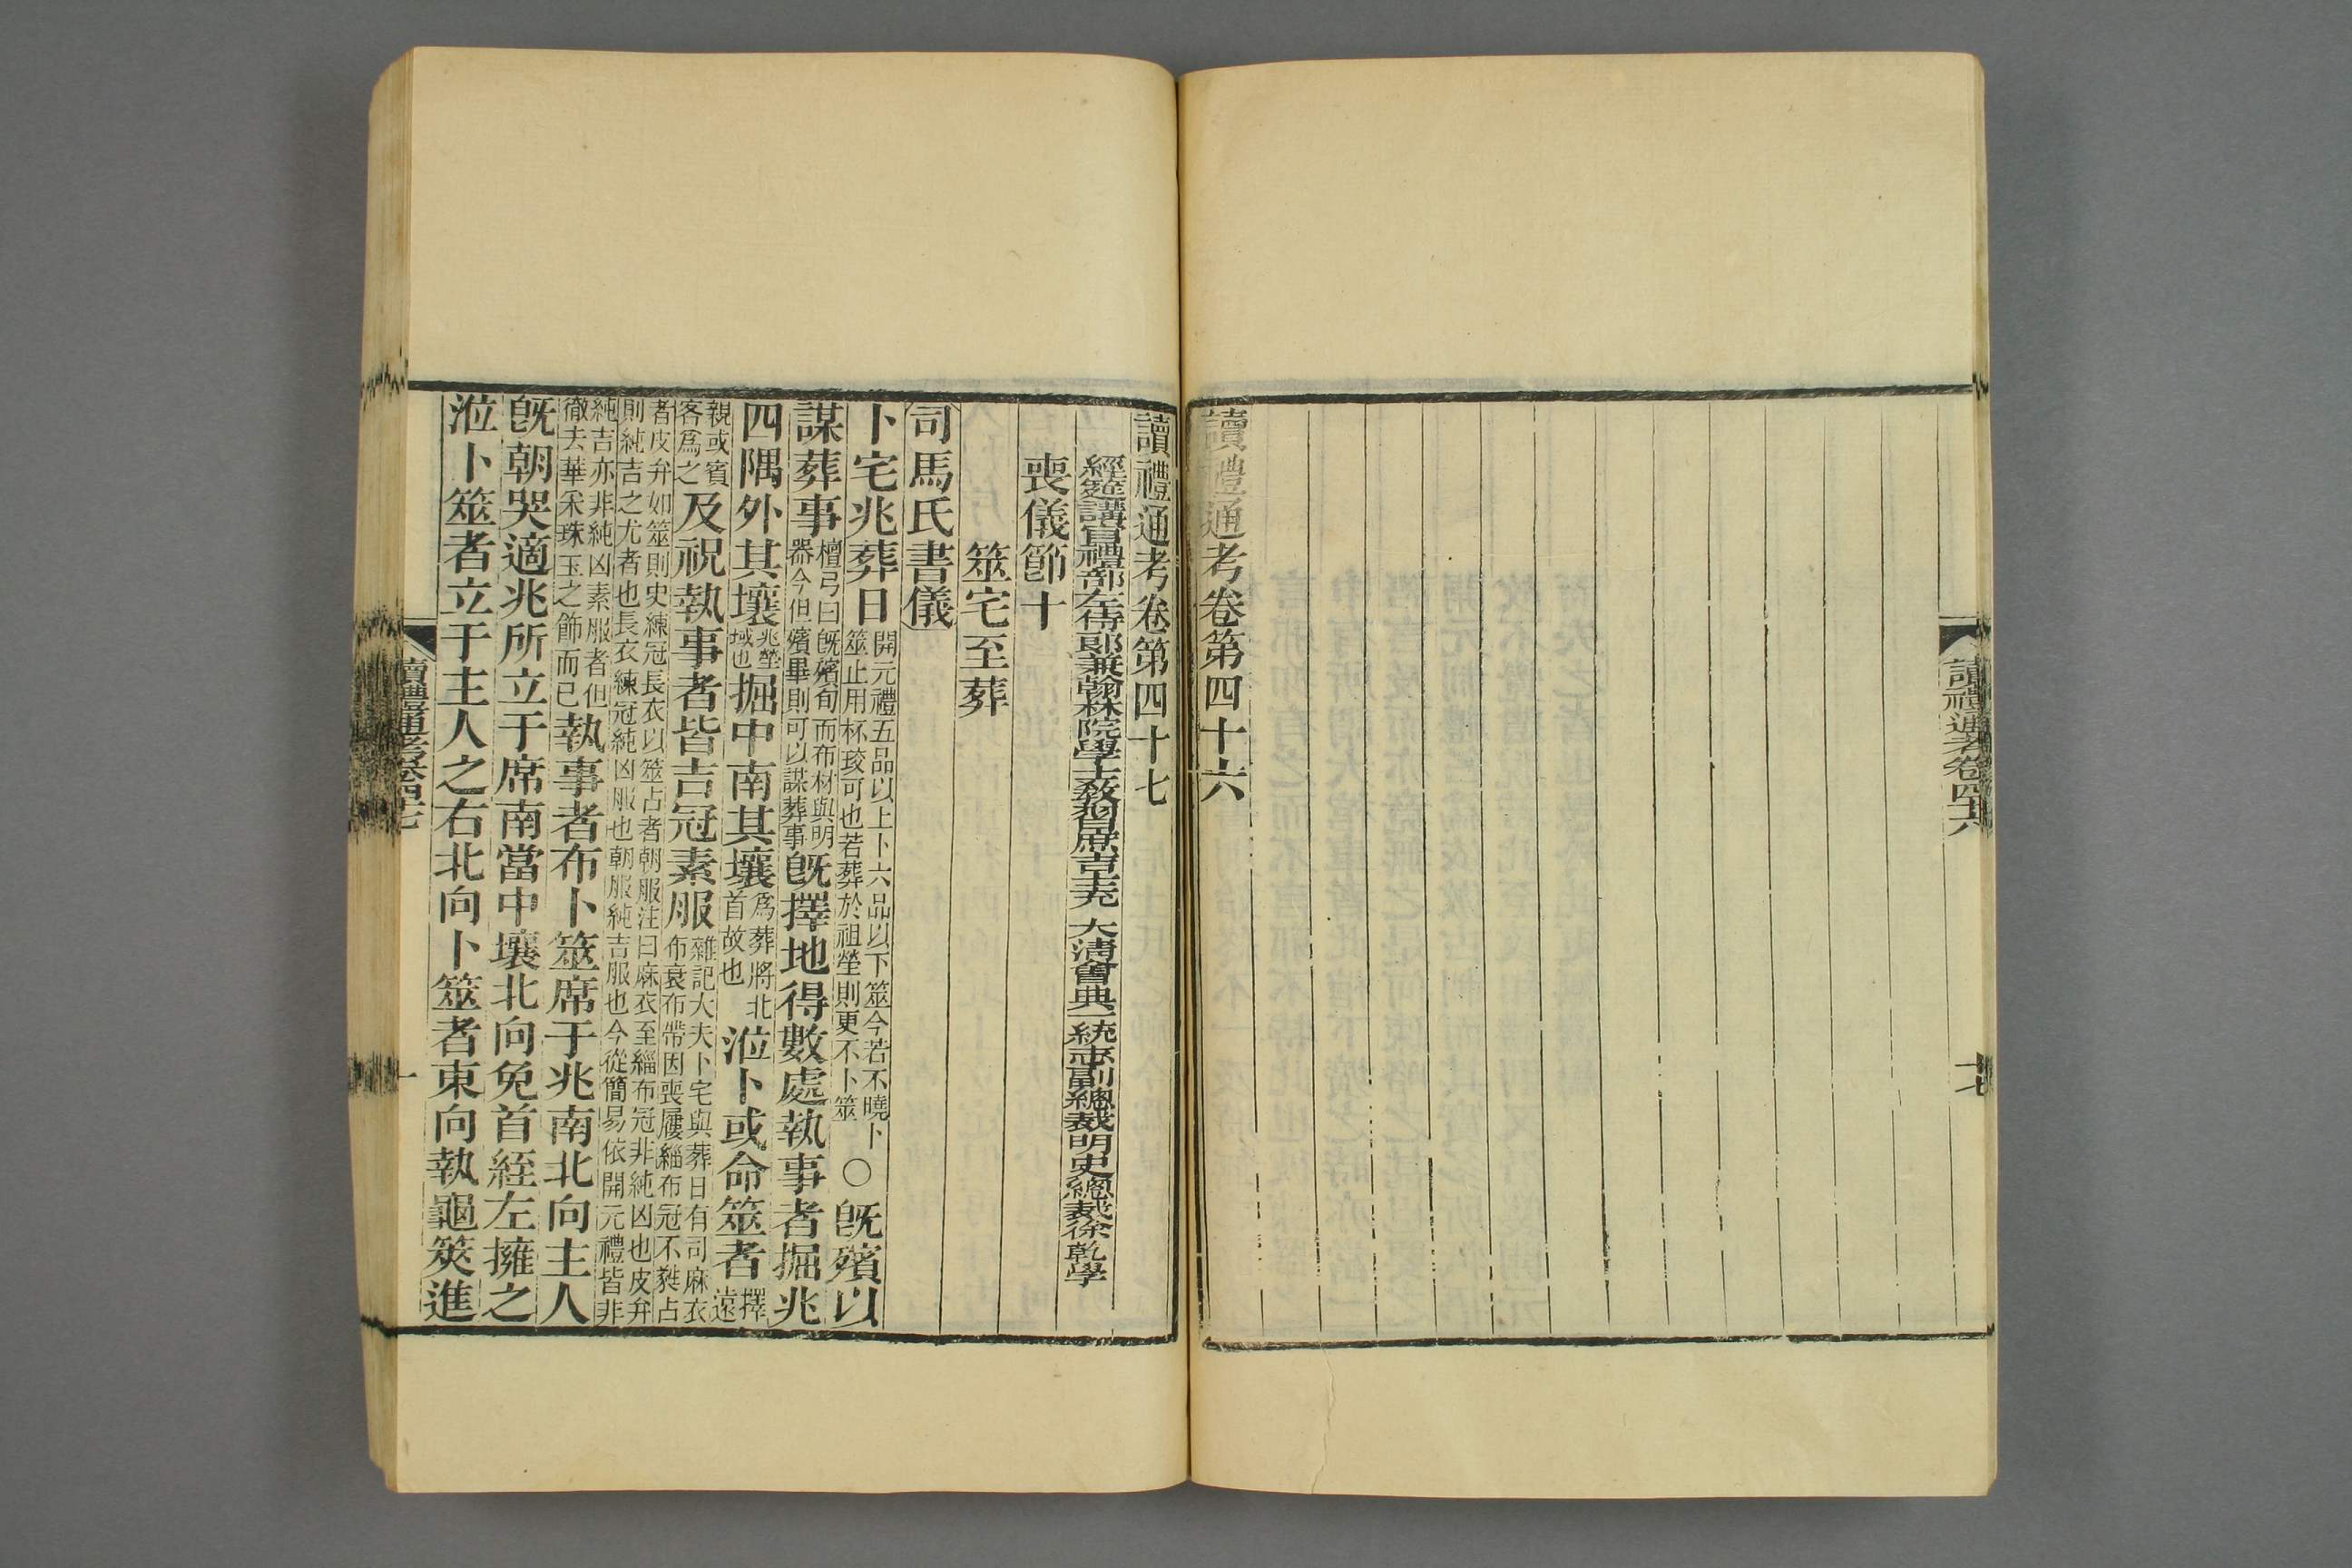 讀禮通考卷四十六
十七
讀禮通考卷第四十六
讀禮通考卷第四十七
經筵講官禮部左侍郎兼翰林院學士教習庶吉士充 大清會典一統志副總裁明史總裁徐乾學
喪儀節十
筮宅至葬
司馬氏書儀
卜宅兆葬日開元禮五品以上卜六品以下筮今若不曉卜筮止用杯珓可也若葬於祖塋則更不卜筮○既殯以
謀葬事檀弓曰既殯旬而布材與明器今但殯畢則可以謀葬事既擇地得數處執事者掘兆
四隅外其壤兆塋域也掘中南其壤爲葬將北首故也涖卜或命筮者擇遠
親或賓客爲之及祝執事者皆吉冠素服雜記大夫卜宅與葬日有司麻衣布衰布帶因喪屨緇布冠不蕤占
者皮弁如筮則史練冠長衣以筮占者朝服注曰麻衣至緇布冠非純凶也皮弁則純吉之尤者也長衣練冠純凶服也朝服純吉服也今從簡易依開元禮皆非
純吉亦非純凶素服者但徹去華采珠玉之飾而已執事者布卜筮席于兆南北向主人
既朝哭適兆所立于席南當中壤北向免首絰左擁之
涖卜筮者立于主人之右北向卜筮者東向執龜筴進
讀禮通考卷四十七
一